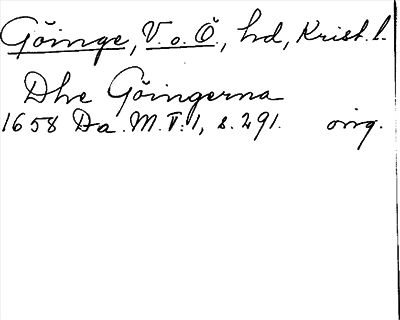 Göinge, V. o. Ö., hd, Krist. l.
Dhe Göingerna
1658 Da. M. V: 1, s. 291. orig.